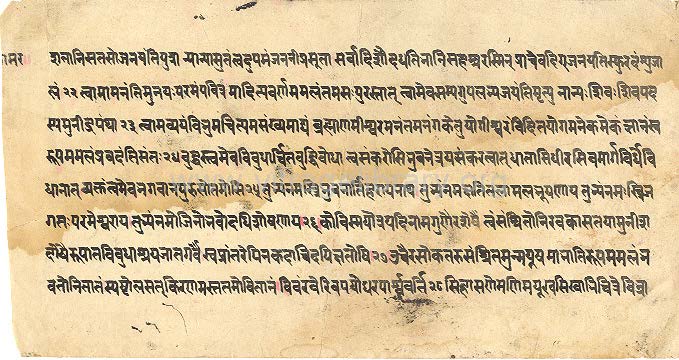 शतानिसतसोजनयंतिपुत्रा न्यान्यासुतंत्वदुपमंजननीप्रसूता सर्वादिशोदधतिभानिसहश्ररस्मिं प्राचैवदिग्जनयतिस्फुरदंशुजा
लं २२ त्वामामनंतिमुनयःपरमंपवित्र मादित्यवर्णममलंतमसःपुरस्तात् त्वामेवसम्यगुपलभ्यजयंतिमृत्यु नान्यःशिवःशिवपद
स्यमुनींद्रपंथा २३ त्वामव्ययंविभुमचिंत्यमसंख्यमाद्यं ब्रह्माणमीश्वरमनंतमनंगकेतु योगीश्वरंविदितयोगमनेकमेकं ज्ञानस्व
रूपममलंप्रवदंतिसंतः २४ बुद्धस्त्वमेवविबुधार्च्चितबुद्धिबोधा त्वंसंकरोसिभुवनत्रयसंकरत्वात् धातासिधीरसिवमार्गविधेर्वि
धानात् व्यक्तंत्वमेवभगवन्पुरुषोत्तमोसि २५ तुभ्यंनमस्त्रिभुवनार्तिहरायनाथ तुभ्यंनमःक्षितितलामलभूषणाय तुभ्यंनमःस्त्रिज
गतःपरमेश्वराय तुभ्यंनमोजिनभवोदधिशोषणाय २६ कोविस्मयोत्रयदिनामगुणैरशेषै स्त्वंसंश्रितोनिरवकासतयामुनीश
दोषैरुपात्तविबुधाश्रयजातगर्वैः स्वप्नांतरेपिनकदाचिदपीक्षितोसि २७ उच्चैरसोकतरुसंश्रितमुन्मयूष माभातिरूपममलंभ
वतोनितांतं स्पष्टोल्लसत्किरणमस्ततमोवितानं बिंबंरवेरिवपयोधरपार्श्ववर्त्ति २८ सिंहासणेमणिमयूरवसिखाविचित्रे विभ्रा